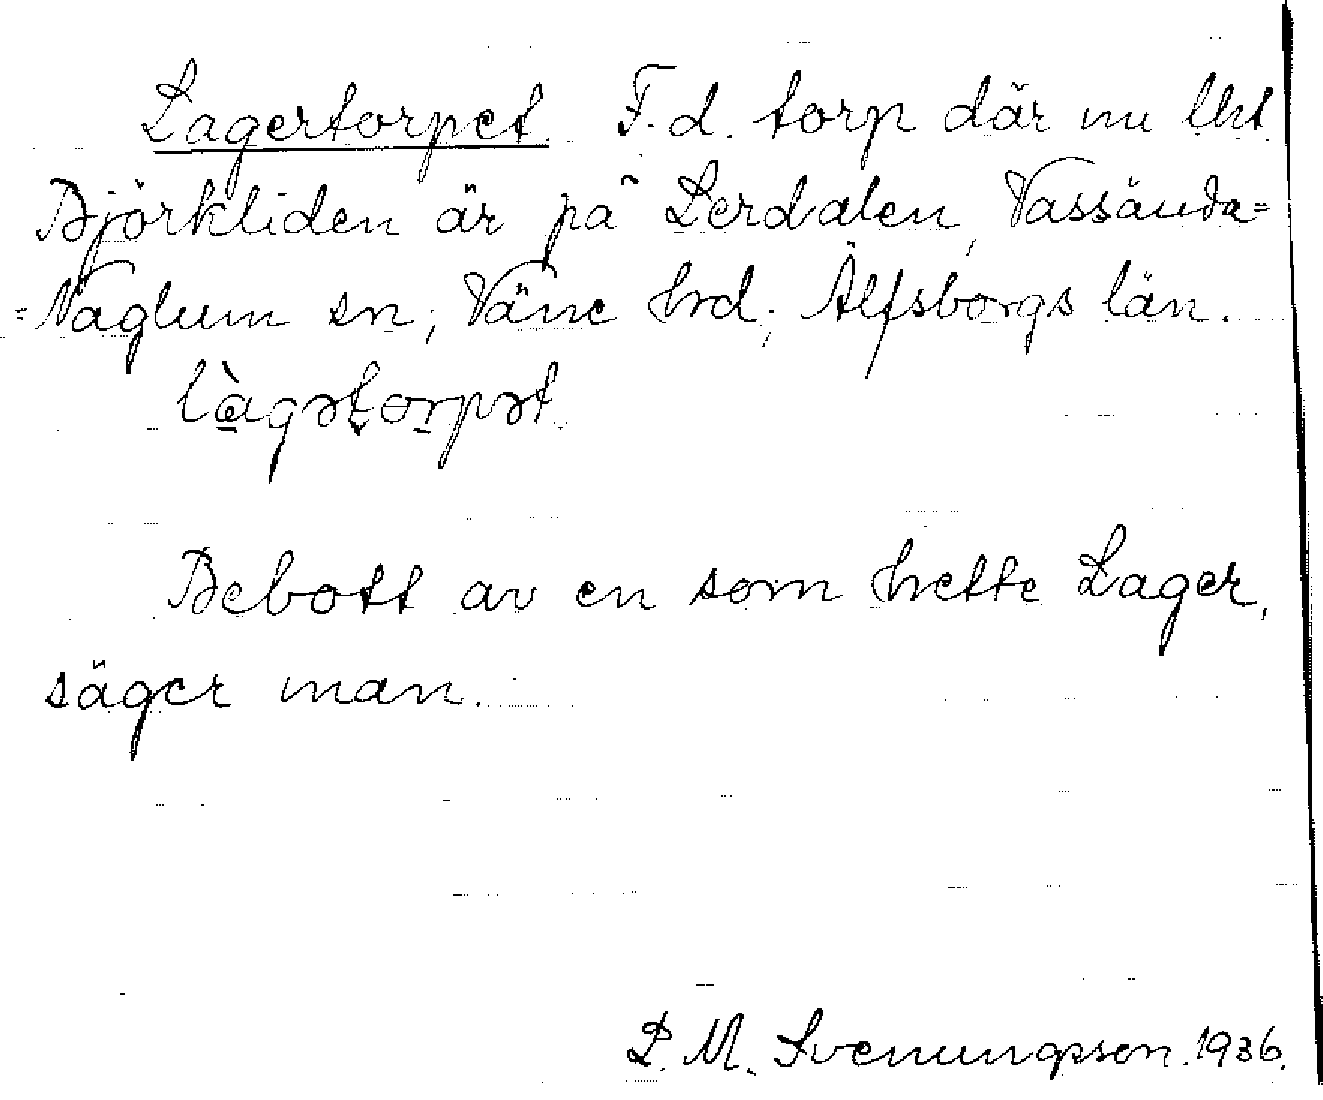 Lagertorpet. F.d. torp där nu lht
Björkliden är på Lerdalen, Vassända=
=Naglum sn, Väne hrd, Älfsborgs län.
làgətorpət.
Bebott av en som hette Lager,
säger man.
P. M. Svenungsson. 1936.